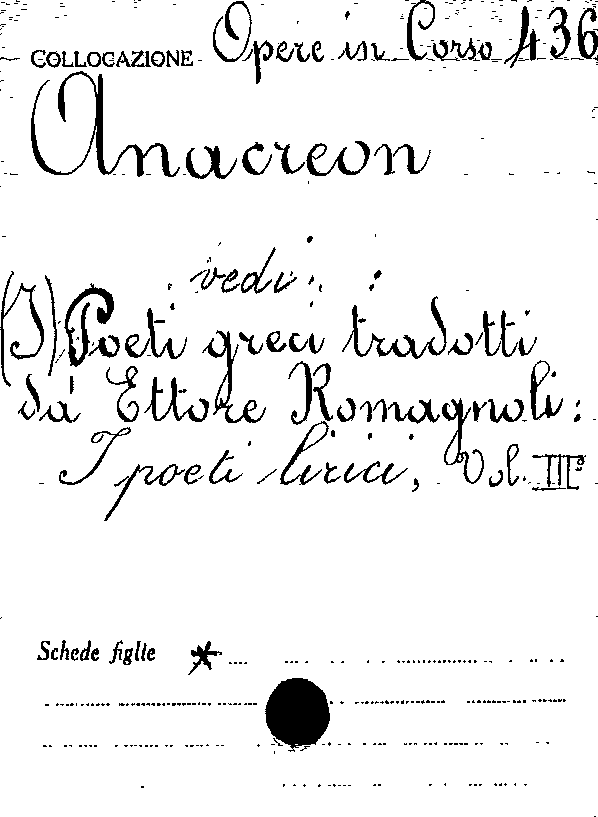 COLLOCAZIONE Opere in Corso 436
Anacreon
vedi:
(I) Poeti greci tradotti
da Ettore Romagnoli:
I poeti lirici, Vol. III°
Schede figlie *